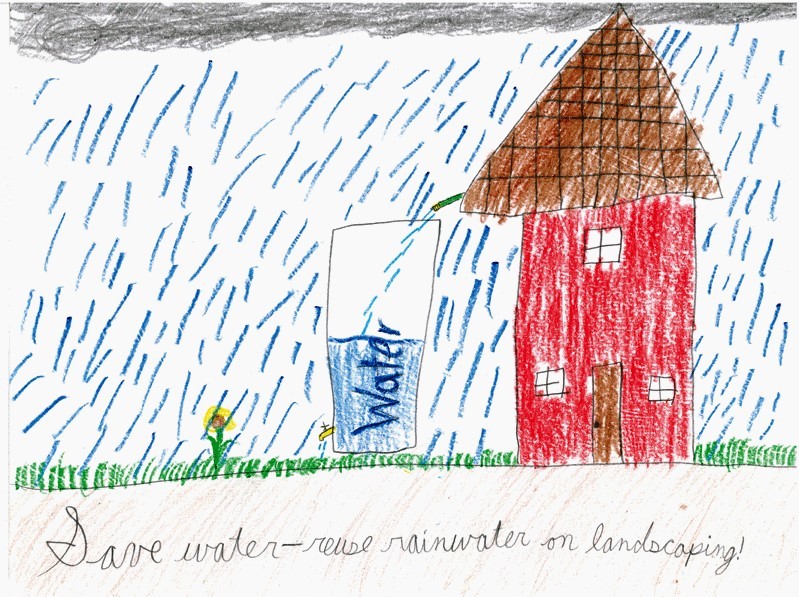 Water
Save water–reuse rainwater on landscaping!